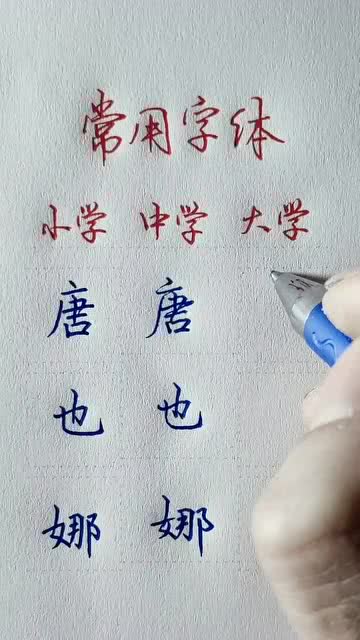 常用字体
小学 中学 大学
唐 唐
也 也
娜 娜